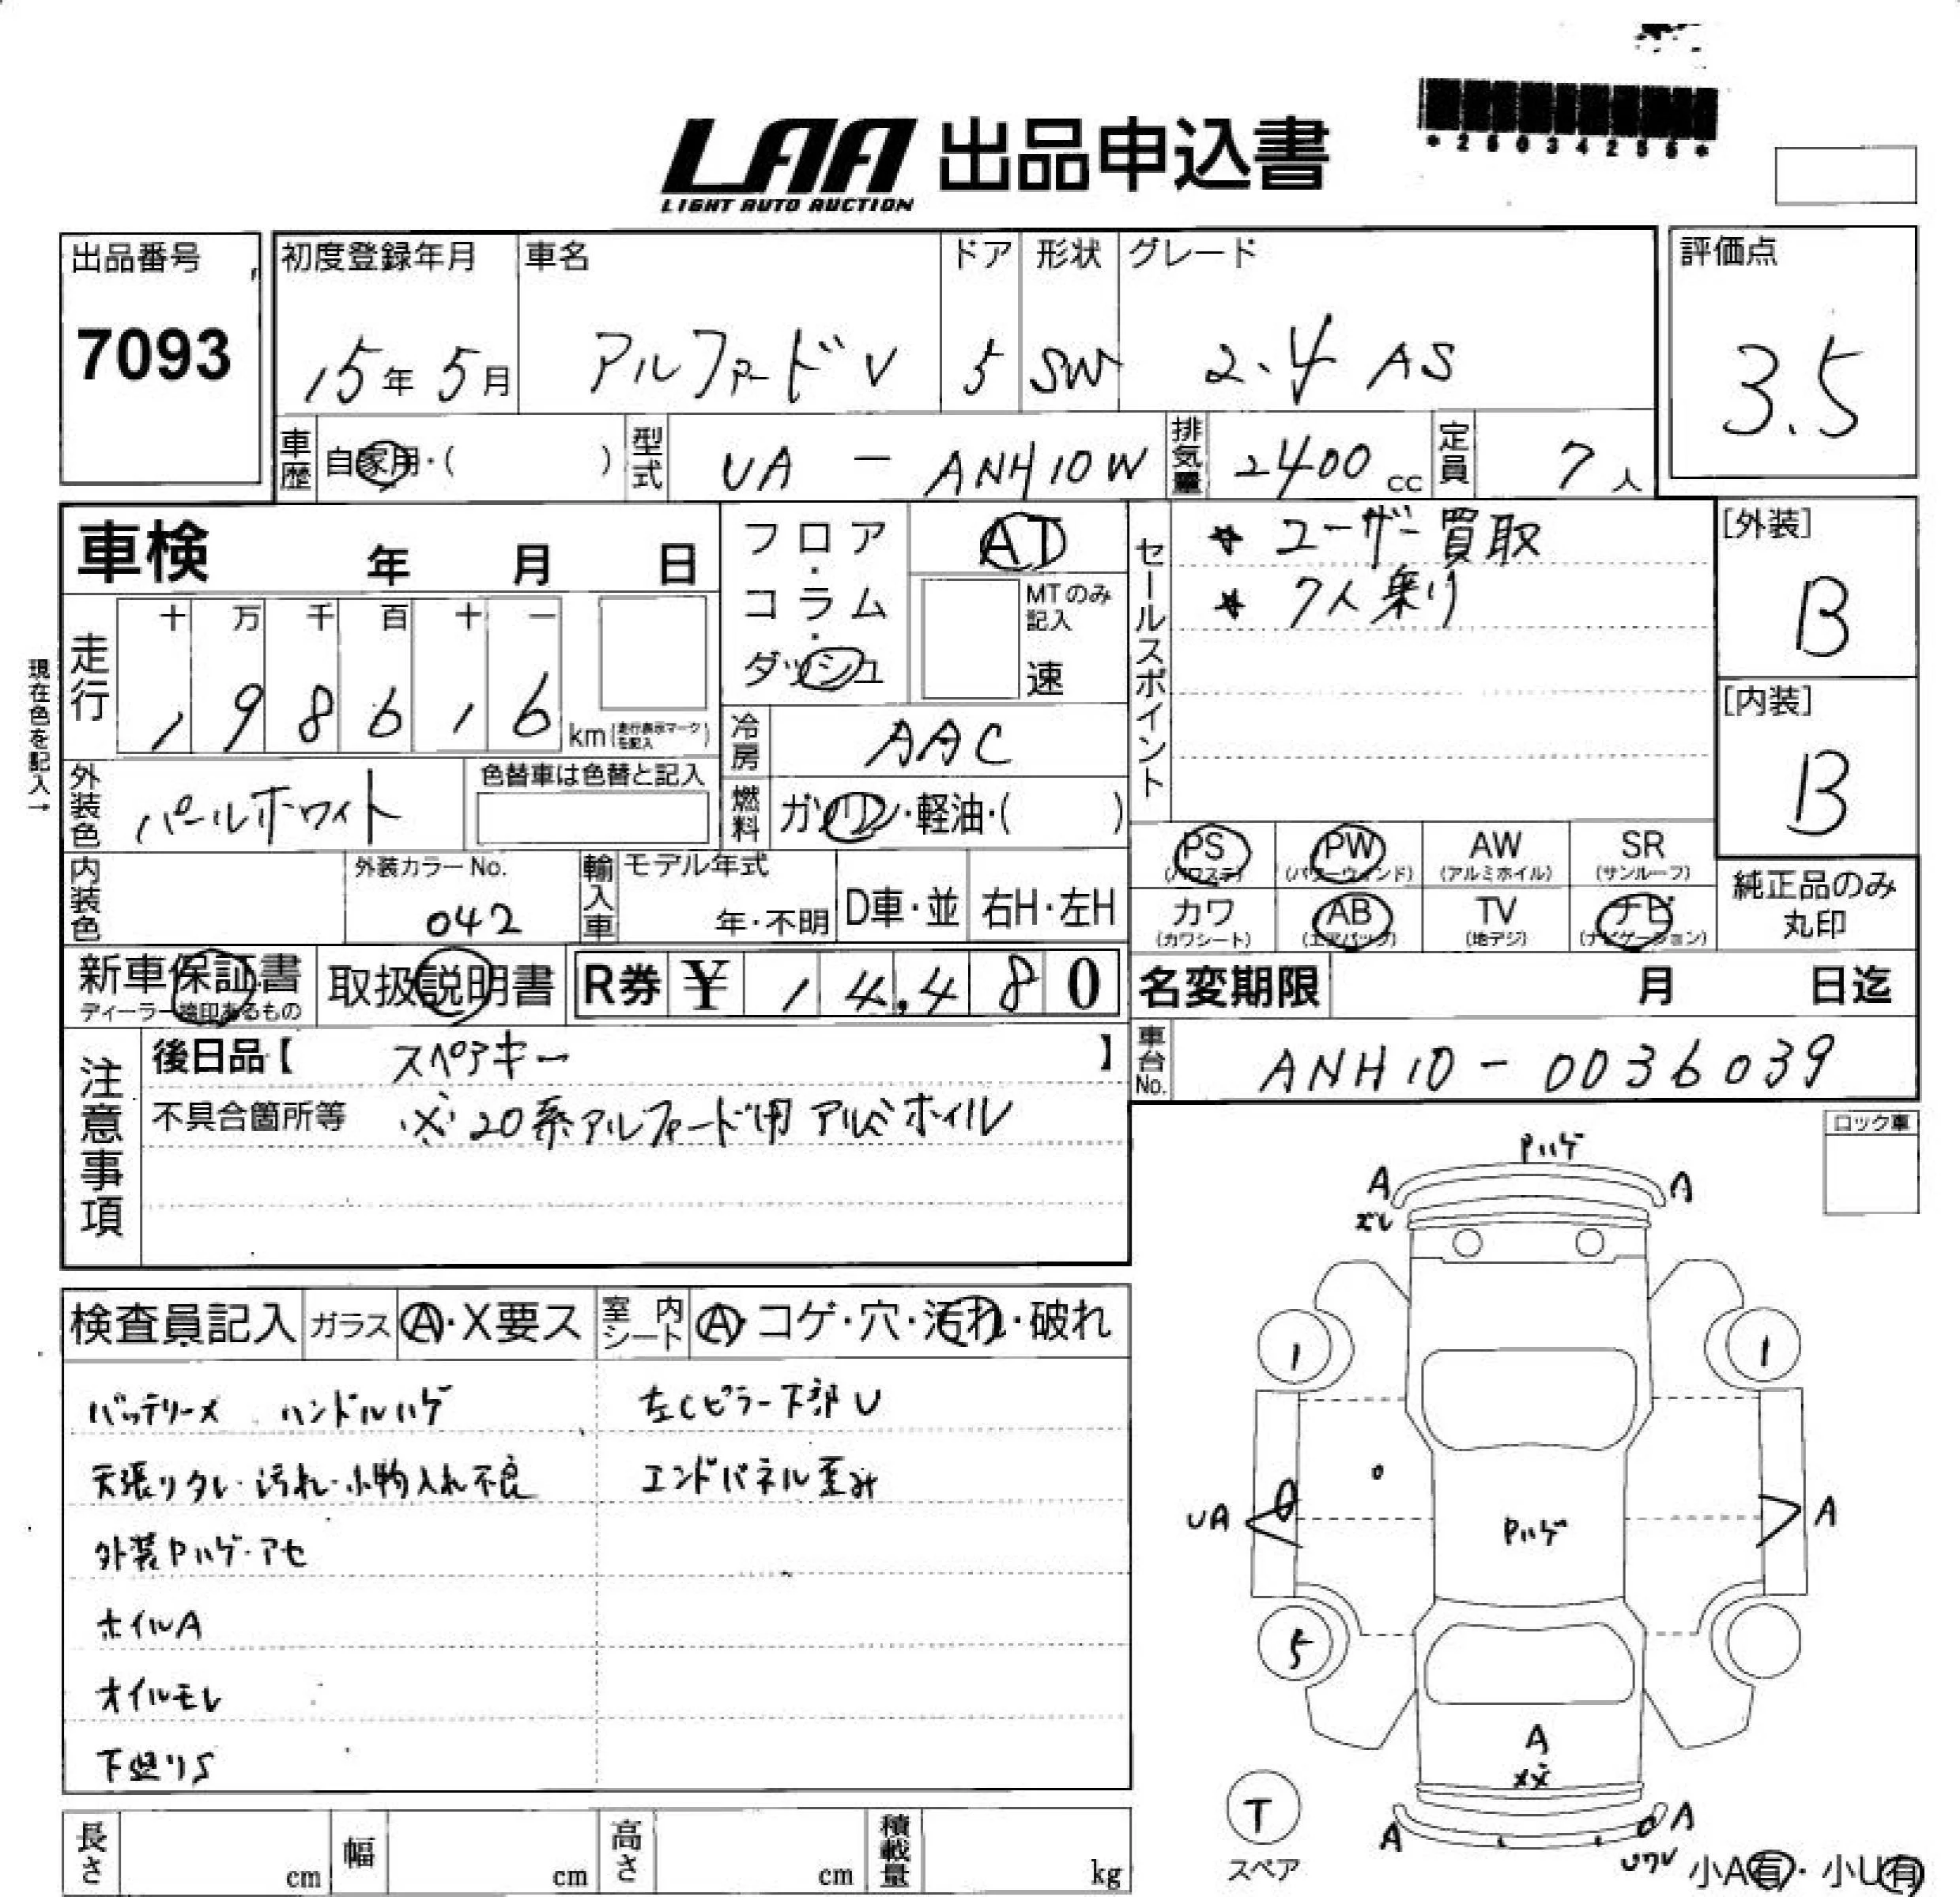 *25034255*
LAA 出品申込書
LIGHT AUTO AUCTION
出品番号 初度登録年月 車名 ドア 形状 グレード 評価点
7093 15年 5月 アルファード V 5 SW 2.4 AS 3.5
車歴 自家用・( ) 型式 UA - ANH10W 排気量 2400 cc 定員 7 人
車検 年 月 日 フロア・コラム・ダッシュ AT
MTのみ記入 速
セールスポイント
* ユーザー買取
* 7人乗り
[外装] B
[内装] B
現在色を記入→
走行 十 万 千 百 十 一
1 9 8 6 1 6 km (走行表示マークを記入)
冷房 AAC
外装色 パールホワイト 色替車は色替と記入
燃料 ガソリン・軽油・( )
PS (パワステ) PW (パワーウィンド) AW (アルミホイル) SR (サンルーフ)
カワ (カワシート) AB (エアバッグ) TV (地デジ) ナビ (ナビゲーション)
純正品のみ丸印
内装色 外装カラーNo. 042 輸入車 モデル年式 年・不明 D車・並 右H・左H
新車保証書 ディーラー捺印あるもの 取扱説明書 R券 ¥ 14,480 名変期限 月 日迄
注意事項
後日品【 スペアキー 】 車台No. ANH10-0036039
不具合箇所等 ※20系アルファード用 アルミホイル
ロック車
検査員記入 ガラス A・X要ス 室内シート A・コゲ・穴・汚れ・破れ
バッテリーメ ハンドルハゲ 左Cピラー下部U
天張りタレ・汚れ・小物入れ不良 エンドパネル歪み
外装Pハゲ・アセ
ホイルA
オイルモレ
下廻りS
長さ cm 幅 cm 高さ cm 積載量 kg
Pハゲ
A A
ズレ
1 1
UA A
Pハゲ
5
A
XX
T
スペア
A A
Uワレ
小A有・小U有